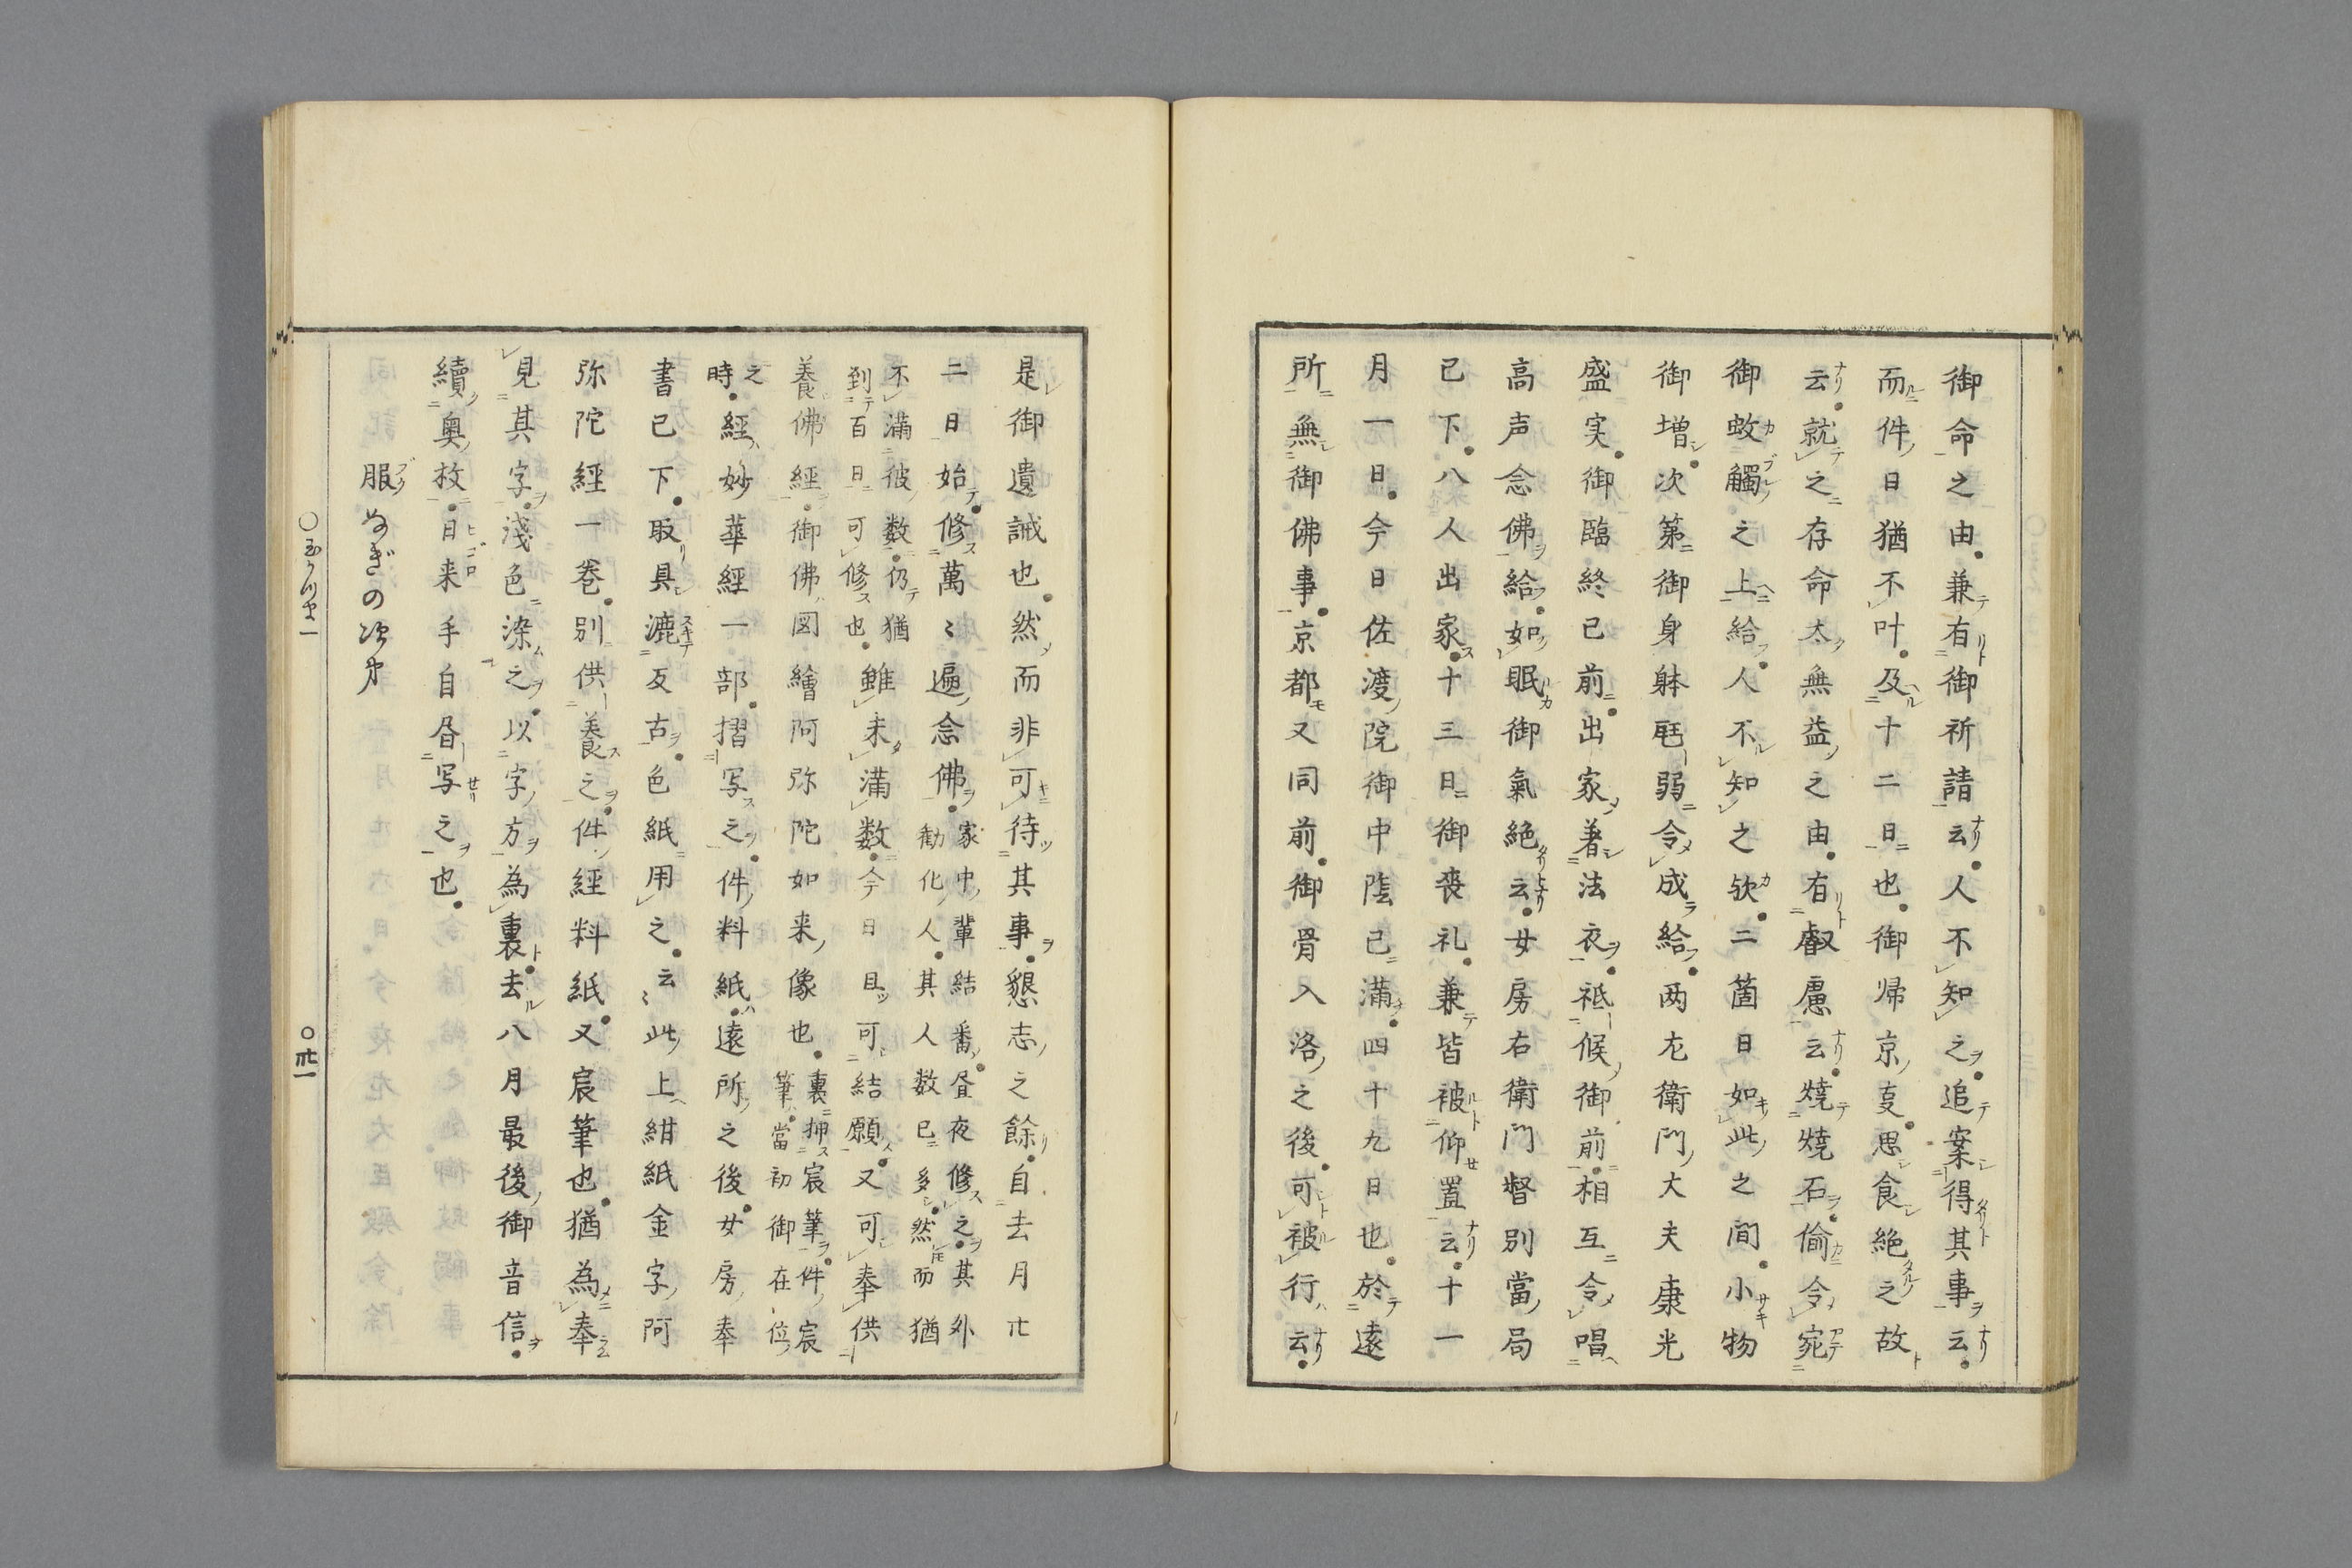 御命之由兼有御祈請云人不知之追案得其事云
而件日猶不叶及十二日也御帰京支思食絶之故
云就之存命太無益之由有叡慮云燒燒石偷令宛
御蚊觸之上給人不知之欤二箇日如此之間小物
御增次第御身躰尫弱令成給両左衛門大夫康光
盛実御臨終已前出家著法衣祗候御前相互令唱
高声念佛給如眠御氣絶云女房右衛門督別當局
已下八人出家十三日御喪礼兼皆被仰置云十一
月一日今日佐渡院御中陰已満四十九日也於遠
所無御佛事京都又同前御骨入洛之後可被行云
是御遺誡也然而非可待其事懇志之餘自去月廿
二日始修萬〻遍念佛家中輩結番昼夜修之其外
勧化人其人数已多然而猶
不満彼数仍猶
到百日可修也雖未満数今日且可結願又可奉供
養佛經御佛図繪阿弥陀如来像也裏押宸筆件宸
筆當初御在位
之
時經妙華經一部摺写之件料紙遠所之後女房奉
書已下取具漉反古色紙用之云〻此上紺紙金字阿
弥陀經一巻別供養之件經料紙又宸筆也猶為奉
見其字淺色染之以字方為裏去八月最後御音信
續奥枚日来手自昼写之也
服ぬぎの次第
○玉かつま一
○卅一